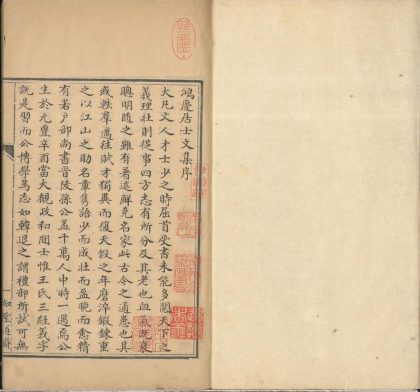 鴻慶居士文集序
大凡文人才士少之時屈首受書未能多閱天下之
義理壯則從事四方志有所分及其老也血氣既衰
聰明隨之雖有著述鮮克名家此古今之通患也其
或軼羣邁往賦才獨異而復天假之年磨淬鍛鍊重
之以江山之助名章雋語少而成壯而益晚而愈精
有若戶部尚書晉陵孫公蓋千萬人中時一遇焉公
生於元豐辛酉當大觀政和間士惟王氏三經義字
說是習而公博學篤志如韓退之謂禮部所試可無